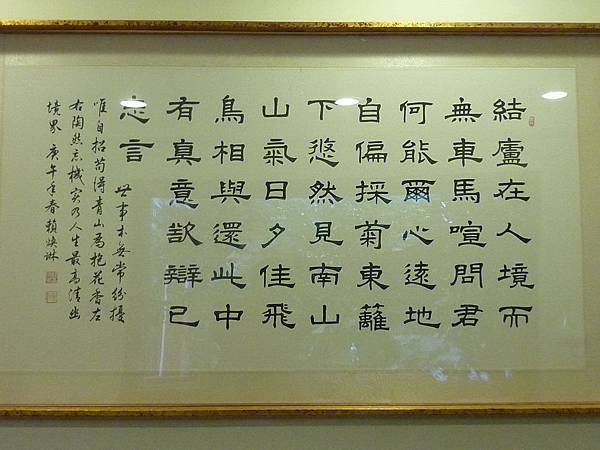 結廬在人境而
無車馬喧問君
何能爾心遠地
自偏採菊東籬
下悠然見南山
山氣日夕佳飛
鳥相與還此中
有真意欲辯已
忘言
世事本無常紛擾
唯自招苟得青山為抱花香左
右陶然忘機實乃人生最高清幽
境界 庚午年春賴煥琳